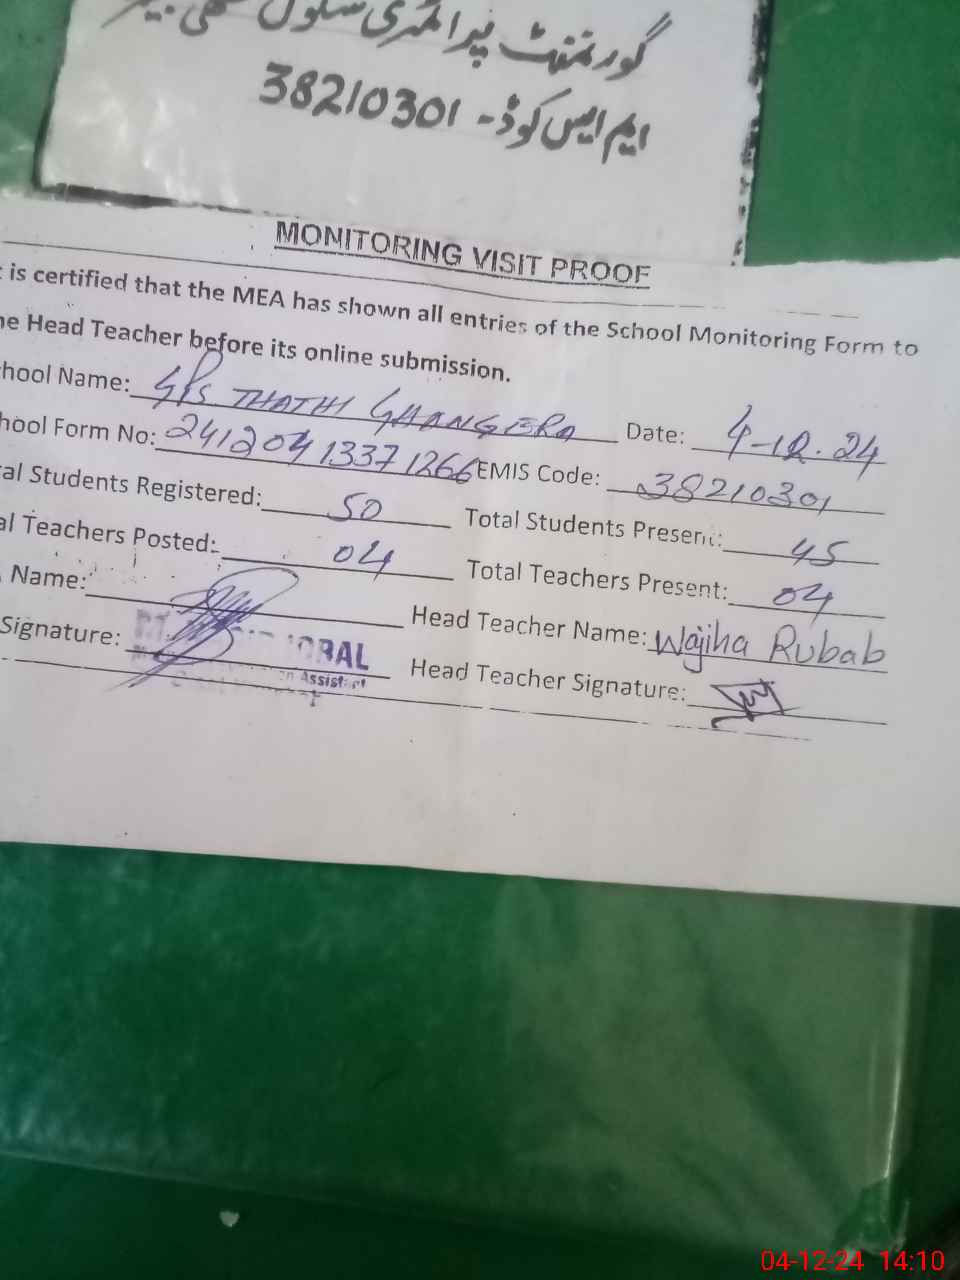 گورنمنٹ پرائمری سکول
ایم ایس کوڈ - 38210301
MONITORING VISIT PROOF
is certified that the MEA has shown all entries of the School Monitoring Form to
he Head Teacher before its online submission.
chool Name: GPS THATHI GHANGERA Date: 4-12-24
hool Form No: 241204 1337 1266 EMIS Code: 38210301
al Students Registered: 50 Total Students Present: 45
al Teachers Posted: 04 Total Teachers Present: 04
Name: Head Teacher Name: Wajiha Rubab
Signature: IQBAL Head Teacher Signature:
Assistant
04-12-24 14:10